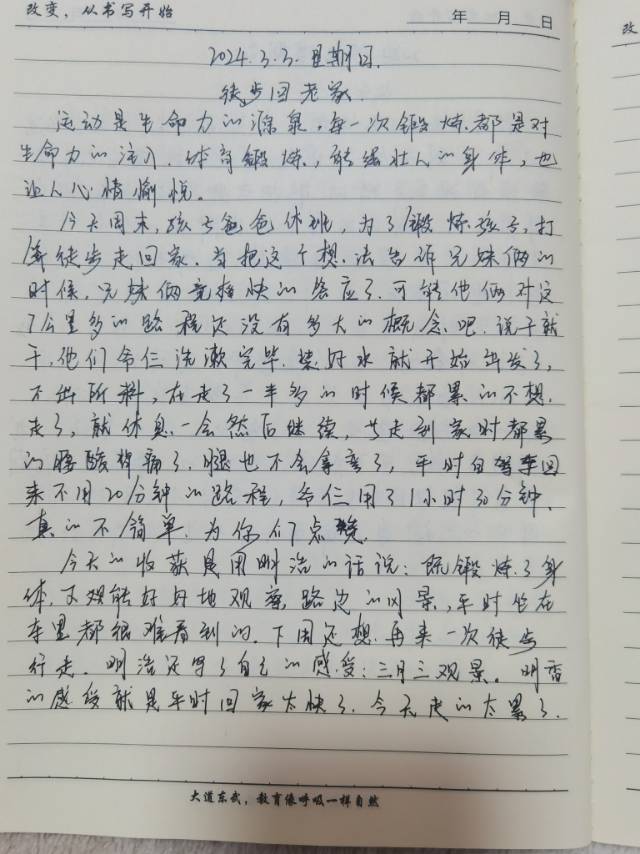 改变，从书写开始
年 月 日
改
2024.3.3. 星期日.
徒步回老家.
运动是生命力的源泉，每一次锻炼都是对
生命力的注入，体育锻炼，能强壮人的身体，也
让人心情愉悦。
今天周末，孩子爸爸休班，为了锻炼孩子，打
算徒步走回家，当把这个想法告诉兄妹俩的
时候，兄妹俩竟爽快的答应了，可能他俩对这
7公里多的路程还没有多大的概念吧，说干就
干，他们爷仨洗漱完毕，装好水就开始出发了，
不出所料，在走了一半多的时候都累的不想
走了，就休息一会然后继续，当走到家时都累
的腰酸背痛了，腿也不会拿弯了，平时自驾车回
来不用20分钟的路程，爷仨用了1小时30分钟，
真的不简单，为你们点赞.
今天的收获是用明浩的话说：既锻炼了身
体，又能好好地观察路边的风景，平时坐在
车里都很难看到的，下周还想再来一次徒步
行走，明浩还写了自己的感受：三月三观景。明
的感受就是平时回家太快了，今天走的太累了.
大道东武，教育像呼吸一样自然